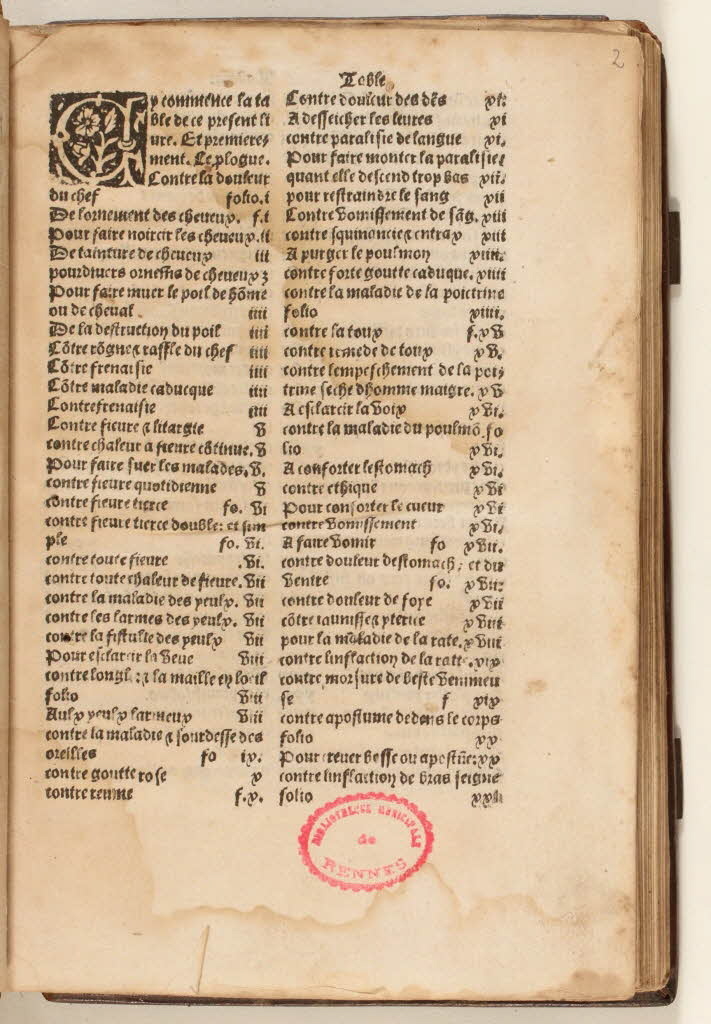 2
Table
Cy commence la ta
ble de ce present li
ure. Et premiere⸗
ment. Le plogue.
Contre la douleur
du chef folio.i
De lornement des cheueux. f.i
Pour faire noircir les cheueux.ii
De tainture de cheueux iii
pour diuers ornemẽs de cheueux 3
Pour faire muer le poil de hõme
ou de cheual iiii
De la destruction du poil
Cõtre rõgne & raffle du chef iiii
Cõtre frenaisie iiii
Cõtre maladie caducque iiii
Contre frenaisie iiii
Contre fieure & litargie v
contre chaleur a fieure cõtinue. v
Pour faire suer les malades. v.
contre fieure quotidienne v
contre fieure tierce fo. vi
contre fieure tierce double: et sim
ple fo. vi.
contre toute fieure .vi.
contre toute chaleur de fieure. vii
contre la maladie des yeulx. vii
contre les larmes des yeulx. vii
contre la fistulle des yeulx vii
Pour esclarcir la veue viii
contre longle: & la maille en loeil
folio viii
Aulx yeulx larmeux viii
contre la maladie & sourdesse des
oreilles fo ix.
contre goutte rose x
contre reume f.x.
Contre douleur des dẽs xi.
A desseicher les leures xi
contre paralisie de langue xi.
Pour faire monter la paralisie
quant elle descend trop bas xii.
pour restraindre le sang xii
Contre vomissement de sãg. xiii
contre squinancie & entrax xiii
A purger le poulmon xiiii.
contre forte goutte caduque. xiiii
contre la maladie de la poictrine
folio xiiii.
contre la toux f.xv
contre remede de toux xv.
contre lempeschement de la poi⸗
trine seche dhomme maigre. xv
A esclarcir la voix xvi.
contre la maladie du poulmõ. fo
lio xvi.
A conforter lestomach xvi.
contre ethique xvi
Pour conforter le cueur xvi
contre vomissement xvi.
A faire vomir fo xvii.
contre douleur destomach; et du
ventre fo. xvii.
contre douleur de foye xvii
cõtre iaunisse & yterice xviii
pour la maladie de la rate. xviii
contre linflaction de la ratte. xix
contre morsure de beste venimeu
se f xix
contre apostume dedens le corps
folio xx
Pour creuer bosse ou apostũe: xx
contre linflaction de bras seigne
folio xxi
BIBLIOTHEQUE MUNICIPALE
de
RENNES